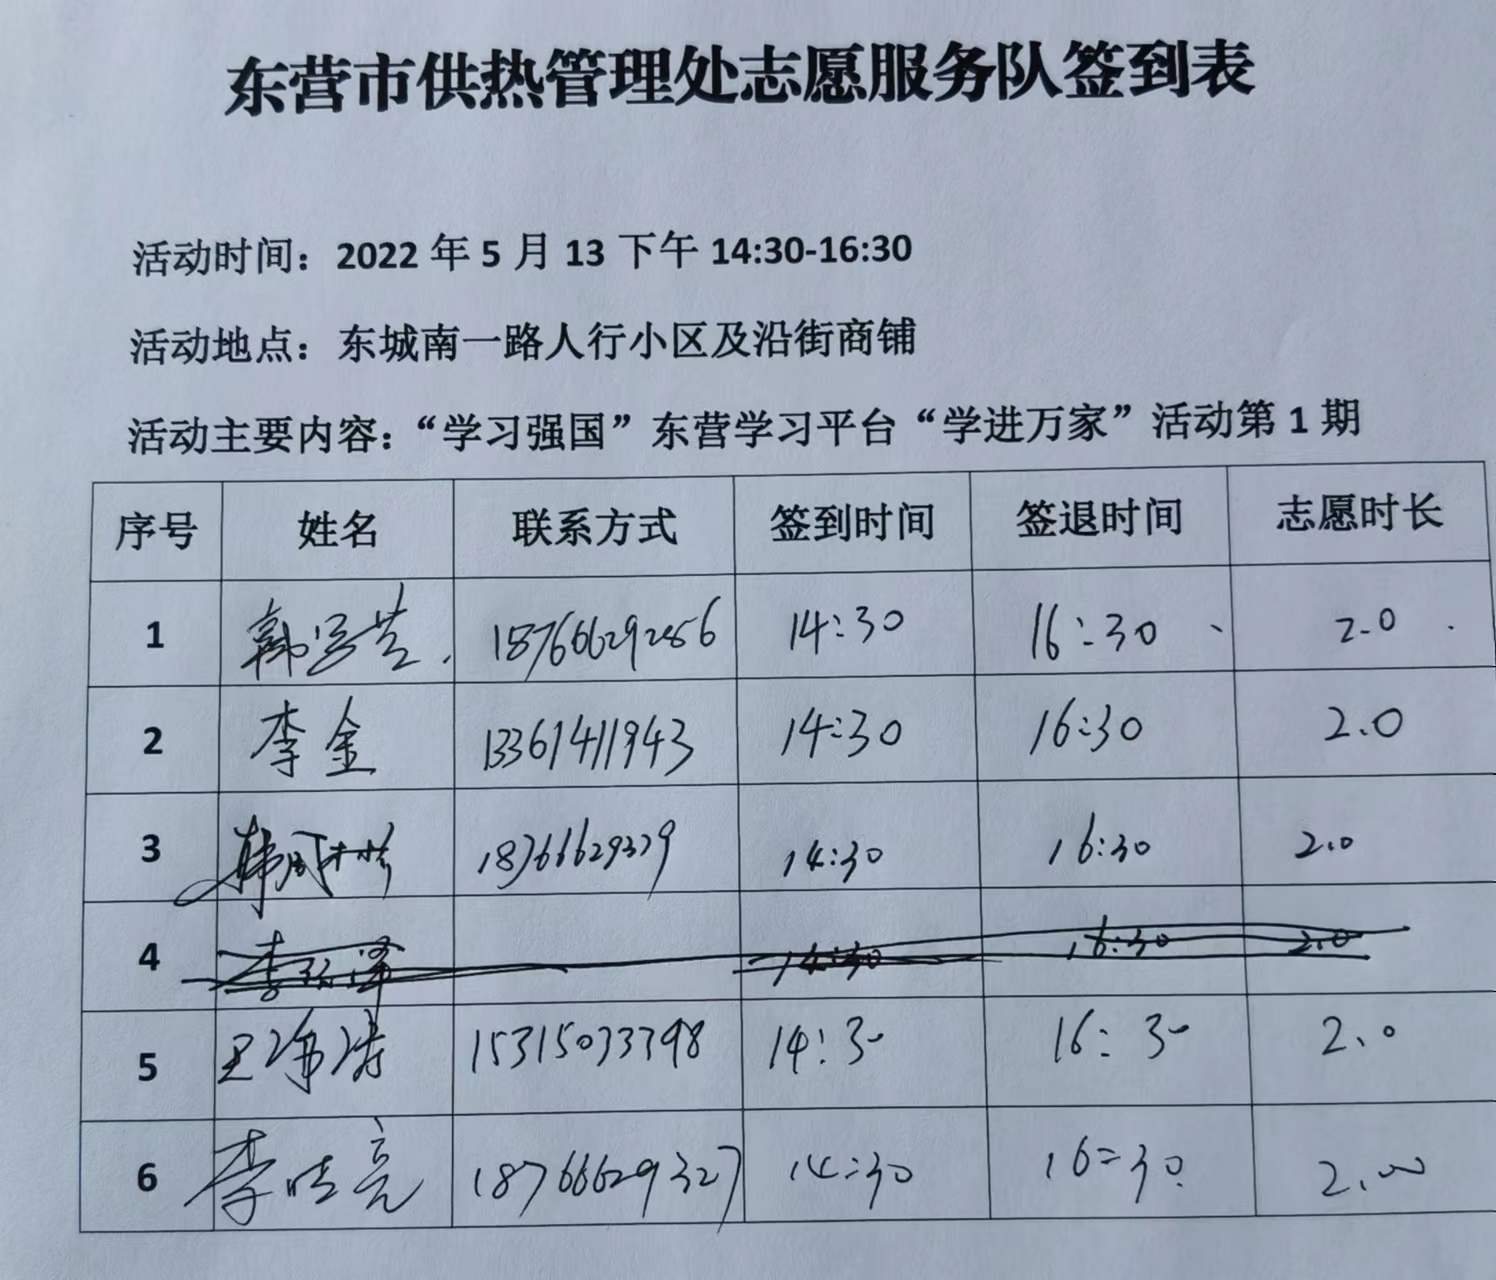 东营市供热管理处志愿服务队签到表
活动时间：2022 年 5 月 13 下午 14:30-16:30
活动地点：东城南一路人行小区及沿街商铺
活动主要内容：“学习强国”东营学习平台“学进万家”活动第 1 期
序号 姓名 联系方式 签到时间 签退时间 志愿时长
1 14:30 16:30 2.0
2 李金 13361411943 14:30 16:30 2.0
3 14:30 16:30 2.0
4 14:30 16:30 2.0
5 15315033398 14:30 16:30 2.0
6 18766629327 14:30 16:30 2.00